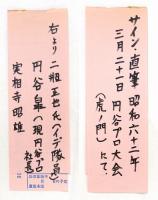 サイン・直筆 昭和六十二年
三月二十一日 円谷プロ大会
(虎ノ門)にて、
右より 二瓶正也氏(イデ隊員)
円谷皐(現円谷プロ
社長)
実相寺昭雄